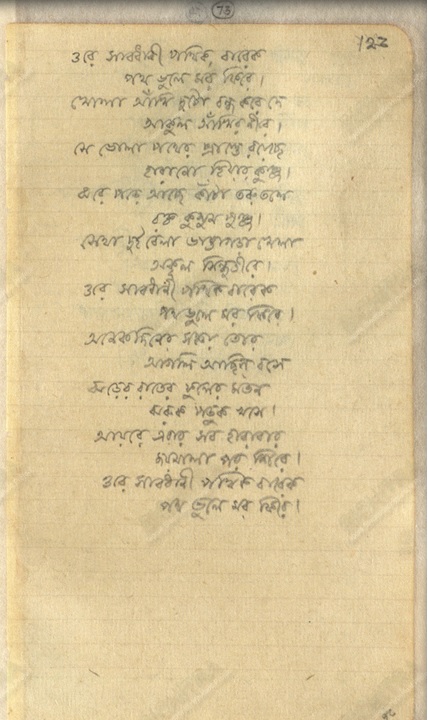 73
122
ওরে সাবধানী পথিক, বারেক
পথ ভুলে মর ফিরে।
খোলা আঁখি দুটো অন্ধ করে দে
আকুল আঁখির নীরে।
সে ভোলা পথের প্রান্তে রয়েছে
হারানো হিয়ার কুঞ্জ।
ঝরে পড়ে আছে কাঁটা তরুতলে
রক্ত কুসুম পুঞ্জ।
সেথা দুইবেলা ভাঙাগড়া খেলা
অকূল সিন্ধুতীরে।
ওরে সাবধানী পথিক বারেক
পথ ভুলে মর ফিরে।
অনেকদিনের সঞ্চয় তোর
আগলি আছিস বসে
ঝড়ের রাতের ফুলের মতন
ঝরুক পড়ুক খসে।
আয়রে এবার সব হারাবার
জয়মালা পর শিরে।
ওরে সাবধানী পথিক বারেক
পথ ভুলে মর ফিরে।